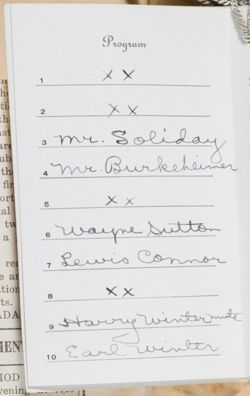 Program
1 X X
2 X X
3 Mr. Soliday
4 Mr. Burkeheimer
5 X X
6 Wayne Sutton
7 Lewis Connor
8 X X
9 Harry Wintermute
10 Earl Winter